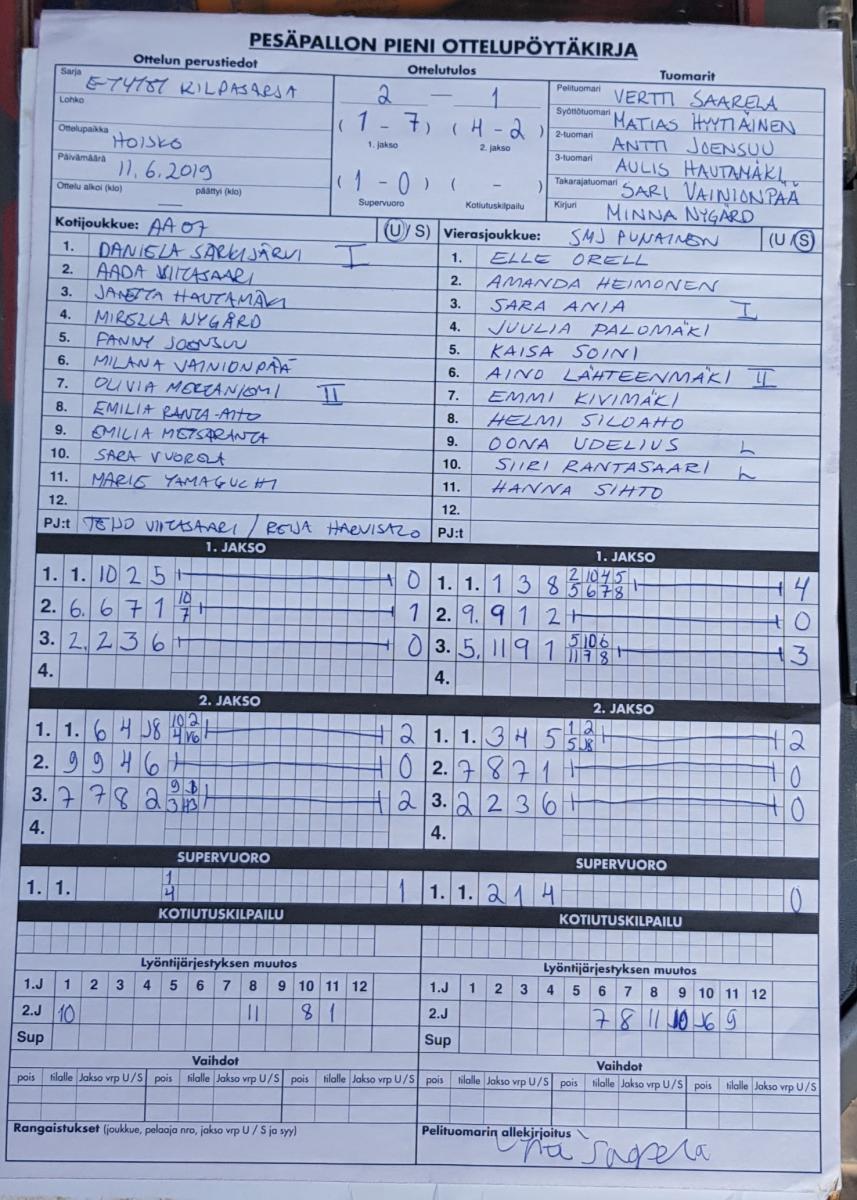 PESÄPALLON PIENI OTTELUPÖYTÄKIRJA
Ottelun perustiedot
Sarja E-TYTÖT KILPASARJA
Lohko
Ottelupaikka HOISKO
Päivämäärä 11.6.2019
Ottelu alkoi (klo) päättyi (klo)
Ottelutulos
2 — 1
( 1 - 7 ) ( 4 - 2 )
1. jakso 2. jakso
( 1 - 0 ) ( - )
Supervuoro Kotiutuskilpailu
Tuomarit
Pelituomari VERTTI SAARELA
Syöttötuomari MATIAS HYYTIÄINEN
2-tuomari ANTTI JOENSUU
3-tuomari AULIS HAUTAMÄKI
Takarajatuomari SARI VAINIONPÄÄ
Kirjuri MINNA NYGÅRD
Kotijoukkue: AA07 (U / S)
1. DANIELA SARKIJÄRVI I
2. AADA VIITASAARI
3. JANETTA HAUTAMÄKI
4. MIRELLA NYGÅRD
5. FANNY JOENSUU
6. MILANA VAINIONPÄÄ
7. OLIVIA METSÄNIEMI II
8. EMILIA RANTA-AHO
9. EMILIA METSÄRANTA
10. SARA VUORELA
11. MARIE YAMAGUCHI
12.
PJ:t TEIJO VIITASAARI / REIJA HARVISALO
Vierasjoukkue: SMJ PUNAINEN (U / S)
1. ELLE ORELL
2. AMANDA HEIMONEN
3. SARA ANIA I
4. JUULIA PALOMÄKI
5. KAISA SOINI
6. AINO LÄHTEENMÄKI II
7. EMMI KIVIMÄKI
8. HELMI SILOAHO
9. OONA UDELIUS L
10. SIIRI RANTASAARI L
11. HANNA SIHTO
12.
PJ:t
1. JAKSO
1. 1. 10 2 5 0
2. 6. 6 7 1 10 7 1
3. 2. 2 3 6 0
4.
1. JAKSO
1. 1. 1 3 8 2 10 4 5 5 6 7 8 4
2. 9. 9 1 2 0
3. 5. 11 9 1 5 10 6 11 7 8 3
4.
2. JAKSO
1. 1. 6 4 8 10 2 4 6 2
2. 9 9 4 6 0
3. 7 7 8 2 9 3 2
4.
2. JAKSO
1. 1. 3 4 5 1 2 5 8 2
2. 7 8 7 1 0
3. 2 2 3 6 0
4.
SUPERVUORO
1. 1. 1 4 1
SUPERVUORO
1. 1. 2 1 4 0
KOTIUTUSKILPAILU
KOTIUTUSKILPAILU
Lyöntijärjestyksen muutos
1.J 1 2 3 4 5 6 7 8 9 10 11 12
2.J 10 11 8 1
Sup
Lyöntijärjestyksen muutos
1.J 1 2 3 4 5 6 7 8 9 10 11 12
2.J 7 8 11 10 6 9
Sup
Vaihdot
pois tilalle Jakso vrp U / S pois tilalle Jakso vrp U / S pois tilalle Jakso vrp U / S
Vaihdot
pois tilalle Jakso vrp U / S pois tilalle Jakso vrp U / S pois tilalle Jakso vrp U / S
Rangaistukset (joukkue, pelaaja nro, jakso vrp U / S ja syy)
Pelituomarin allekirjoitus